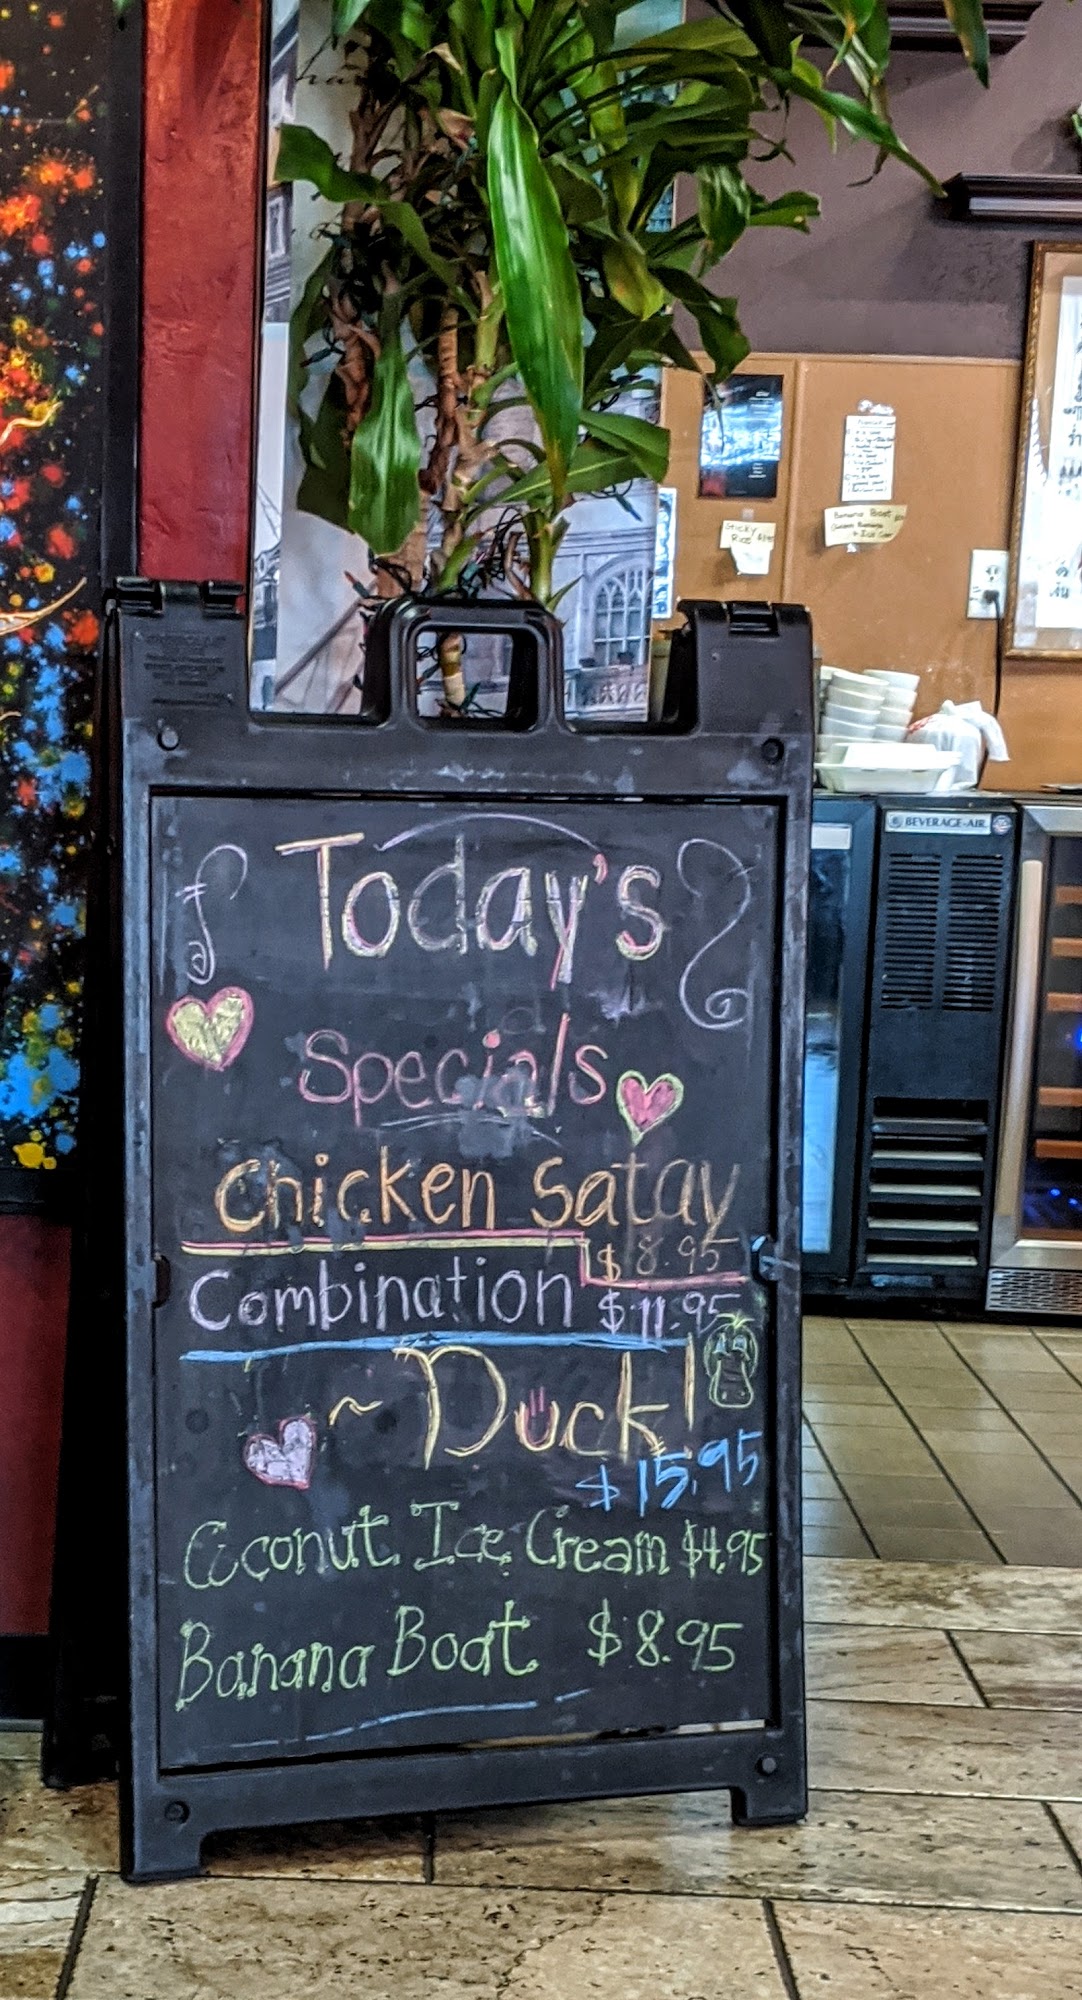 Today's
Specials
Chicken Satay
$8.95
Combination $11.95
~Duck!
$15.95
Coconut Ice Cream $4.95
Banana Boat $8.95
BEVERAGE-AIR
Sticky
Rice
Banana Boat